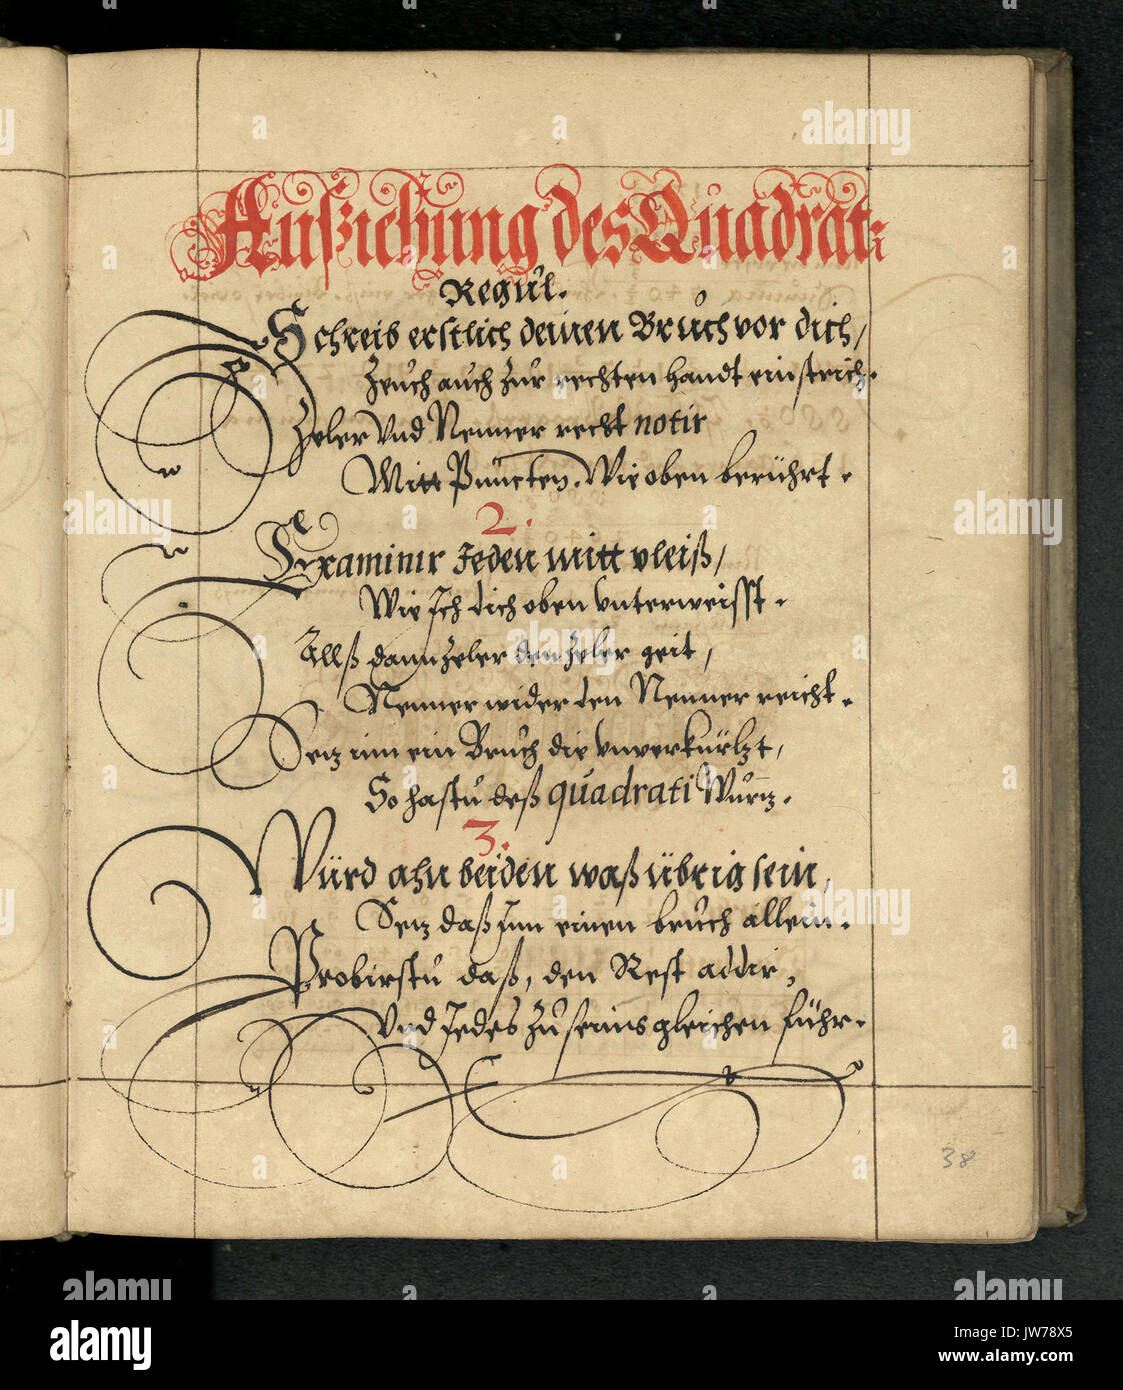 Außziehung des Quadrat:
Regul.
Schreib erstlich deinen Bruch vor dich,
Zeuch auch zur rechten handt ein strich.
Zeler Vnd Nenner recht notir
Mitt Puncten. Wie oben berührt.
2.
Examinir Jeden mitt vleiß,
Wie Ich dich oben vnterweisst.
Allß dann Zeler den Zeler geit,
Nenner wider den Nenner reicht.
Setz inn ein Bruch die vnverkürtzt,
So hastu deß quadrati Wurtz.
3.
Würd ahn beiden waß übrig sein,
Setz daß Inn einen bruch allein.
Probirstu daß, den Rest addir,
Vnd Jedes Zu seins gleichen führ.
38
alamy
Image ID: JW78X5
www.alamy.com